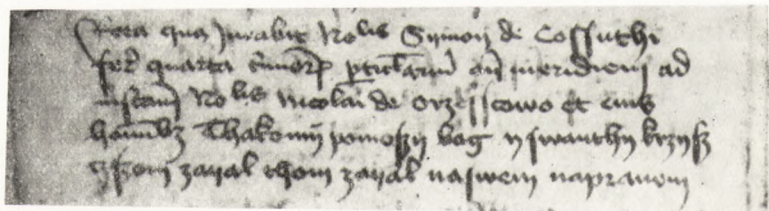 Rota qua Jurabit Nobilis Symon de Cossuthi
feria quarta ante meridiem ad
Instanciam Nobilis Nicolai de Orzesscowo et eius
hominibus Thako my pomoszy bog y swanthy krzysz
yszem zayal thom zayal naswem naprawem